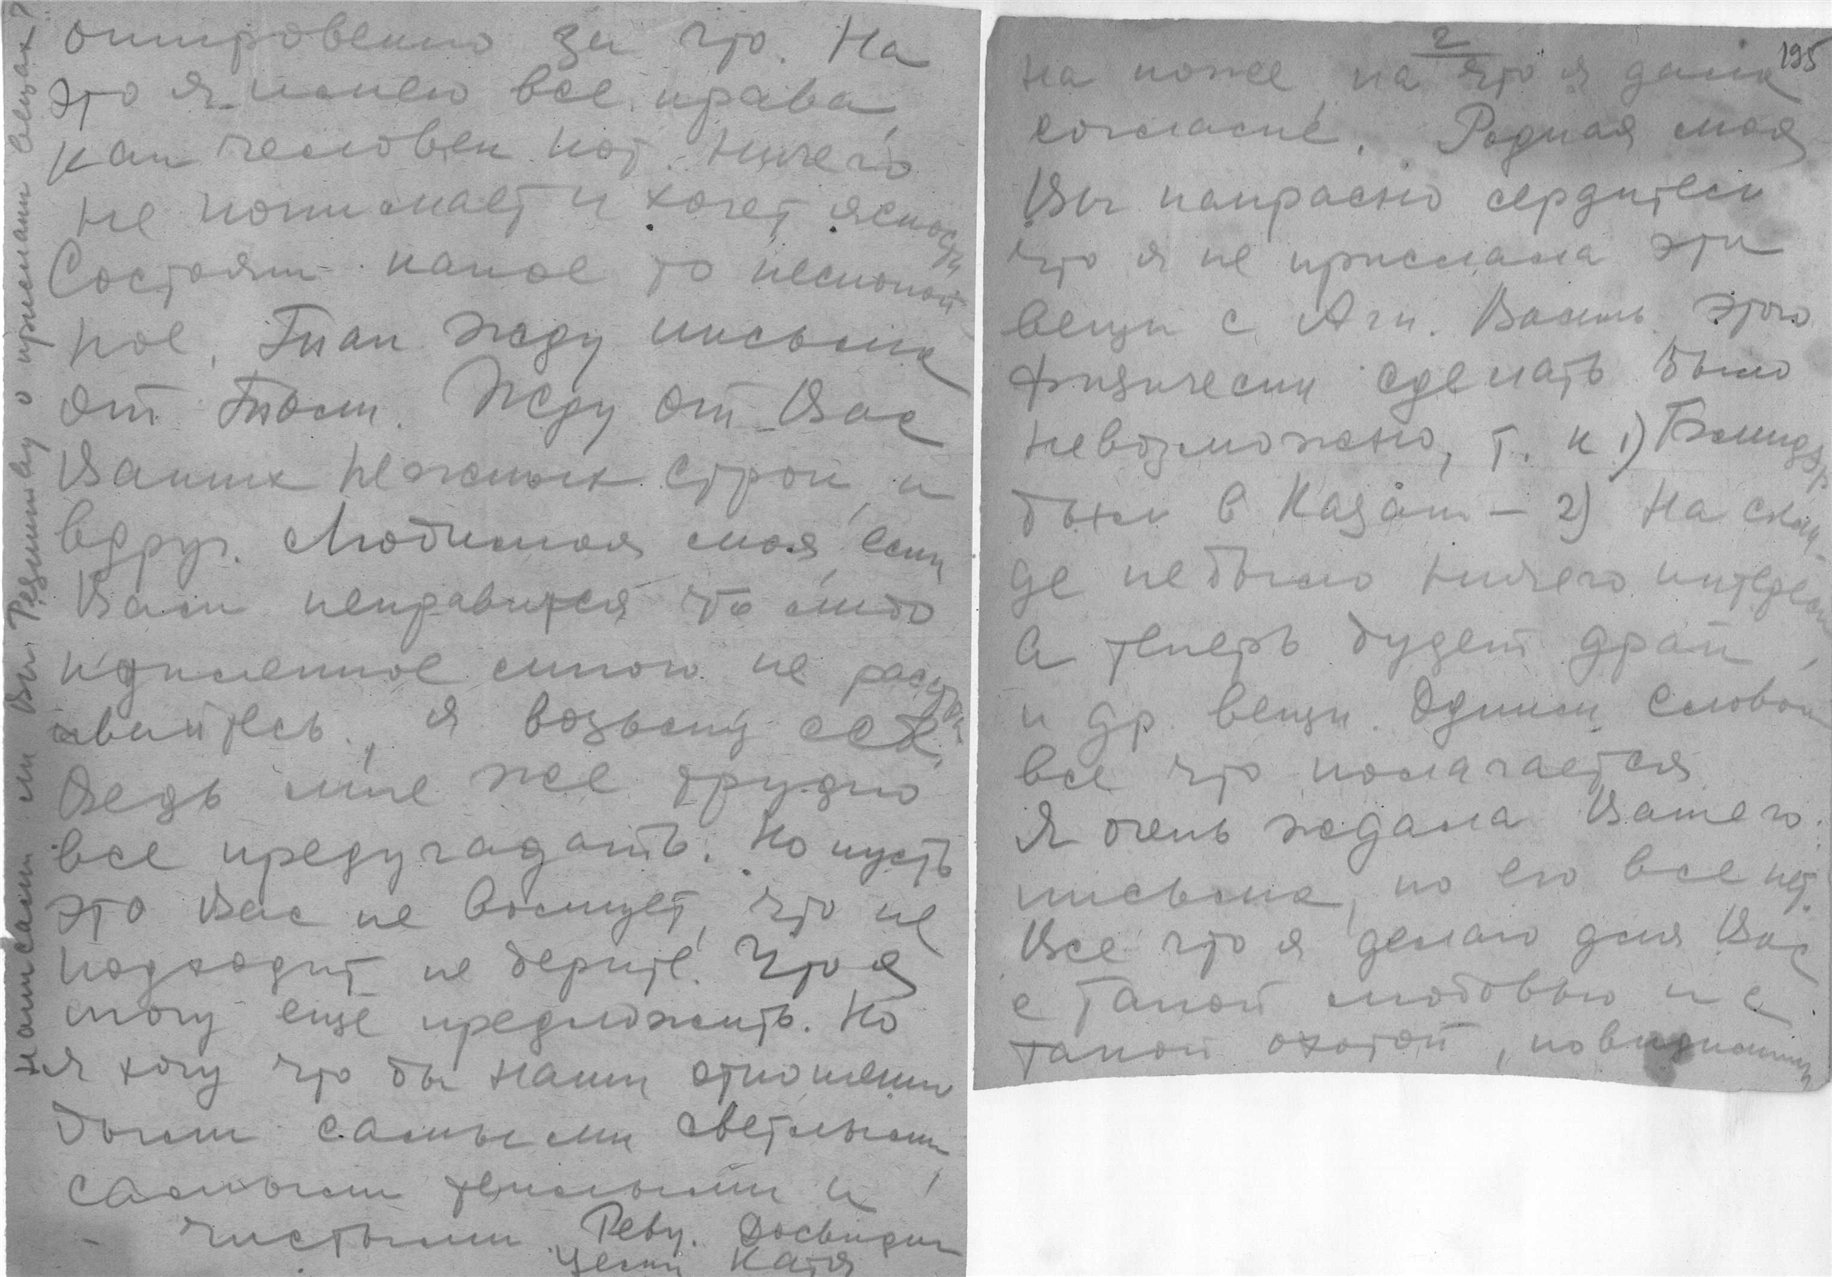 откровенно за что. На
это я имею все права,
как человек кот. ничего
не понимает и хочет ясности
Состоян. какое то неспокой
ное. Так жду письма
от Толи. Жду от Вас
Ваших нежных строк, и
вдруг. Любимая моя, если
Вам ненравится что либо
купленное мною не расстра
ивайтесь, я возьму себе,
Ведь мне же трудно
все предугадать. Но пусть
это Вас не волнует, что не
подходит не берите. Что я
могу еще предложить. Но
я хочу что бы наши отношения
были самыми светлыми,
самыми теплыми и
чистыми. Реву. Досвидан
Целую Катя
Написали ли Вы Резинину о присланных вещах?
2
195
на коже, на что я дала
согласие. Родная моя
Вы напрасно сердитесь
что я не прислала эти
вещи с Аги. Вашим. этого
физически сделать было
невозможно, т. к 1)
были в Казани – 2) На скла-
де не было ничего интересн
а теперь будет драп,
и др. вещи. Одним словом
все что полагается
Я очень ждала Вашего
письма, но его все нет.
Все что я делаю для Вас
с такой любовью и с
такой охотой, повидимому